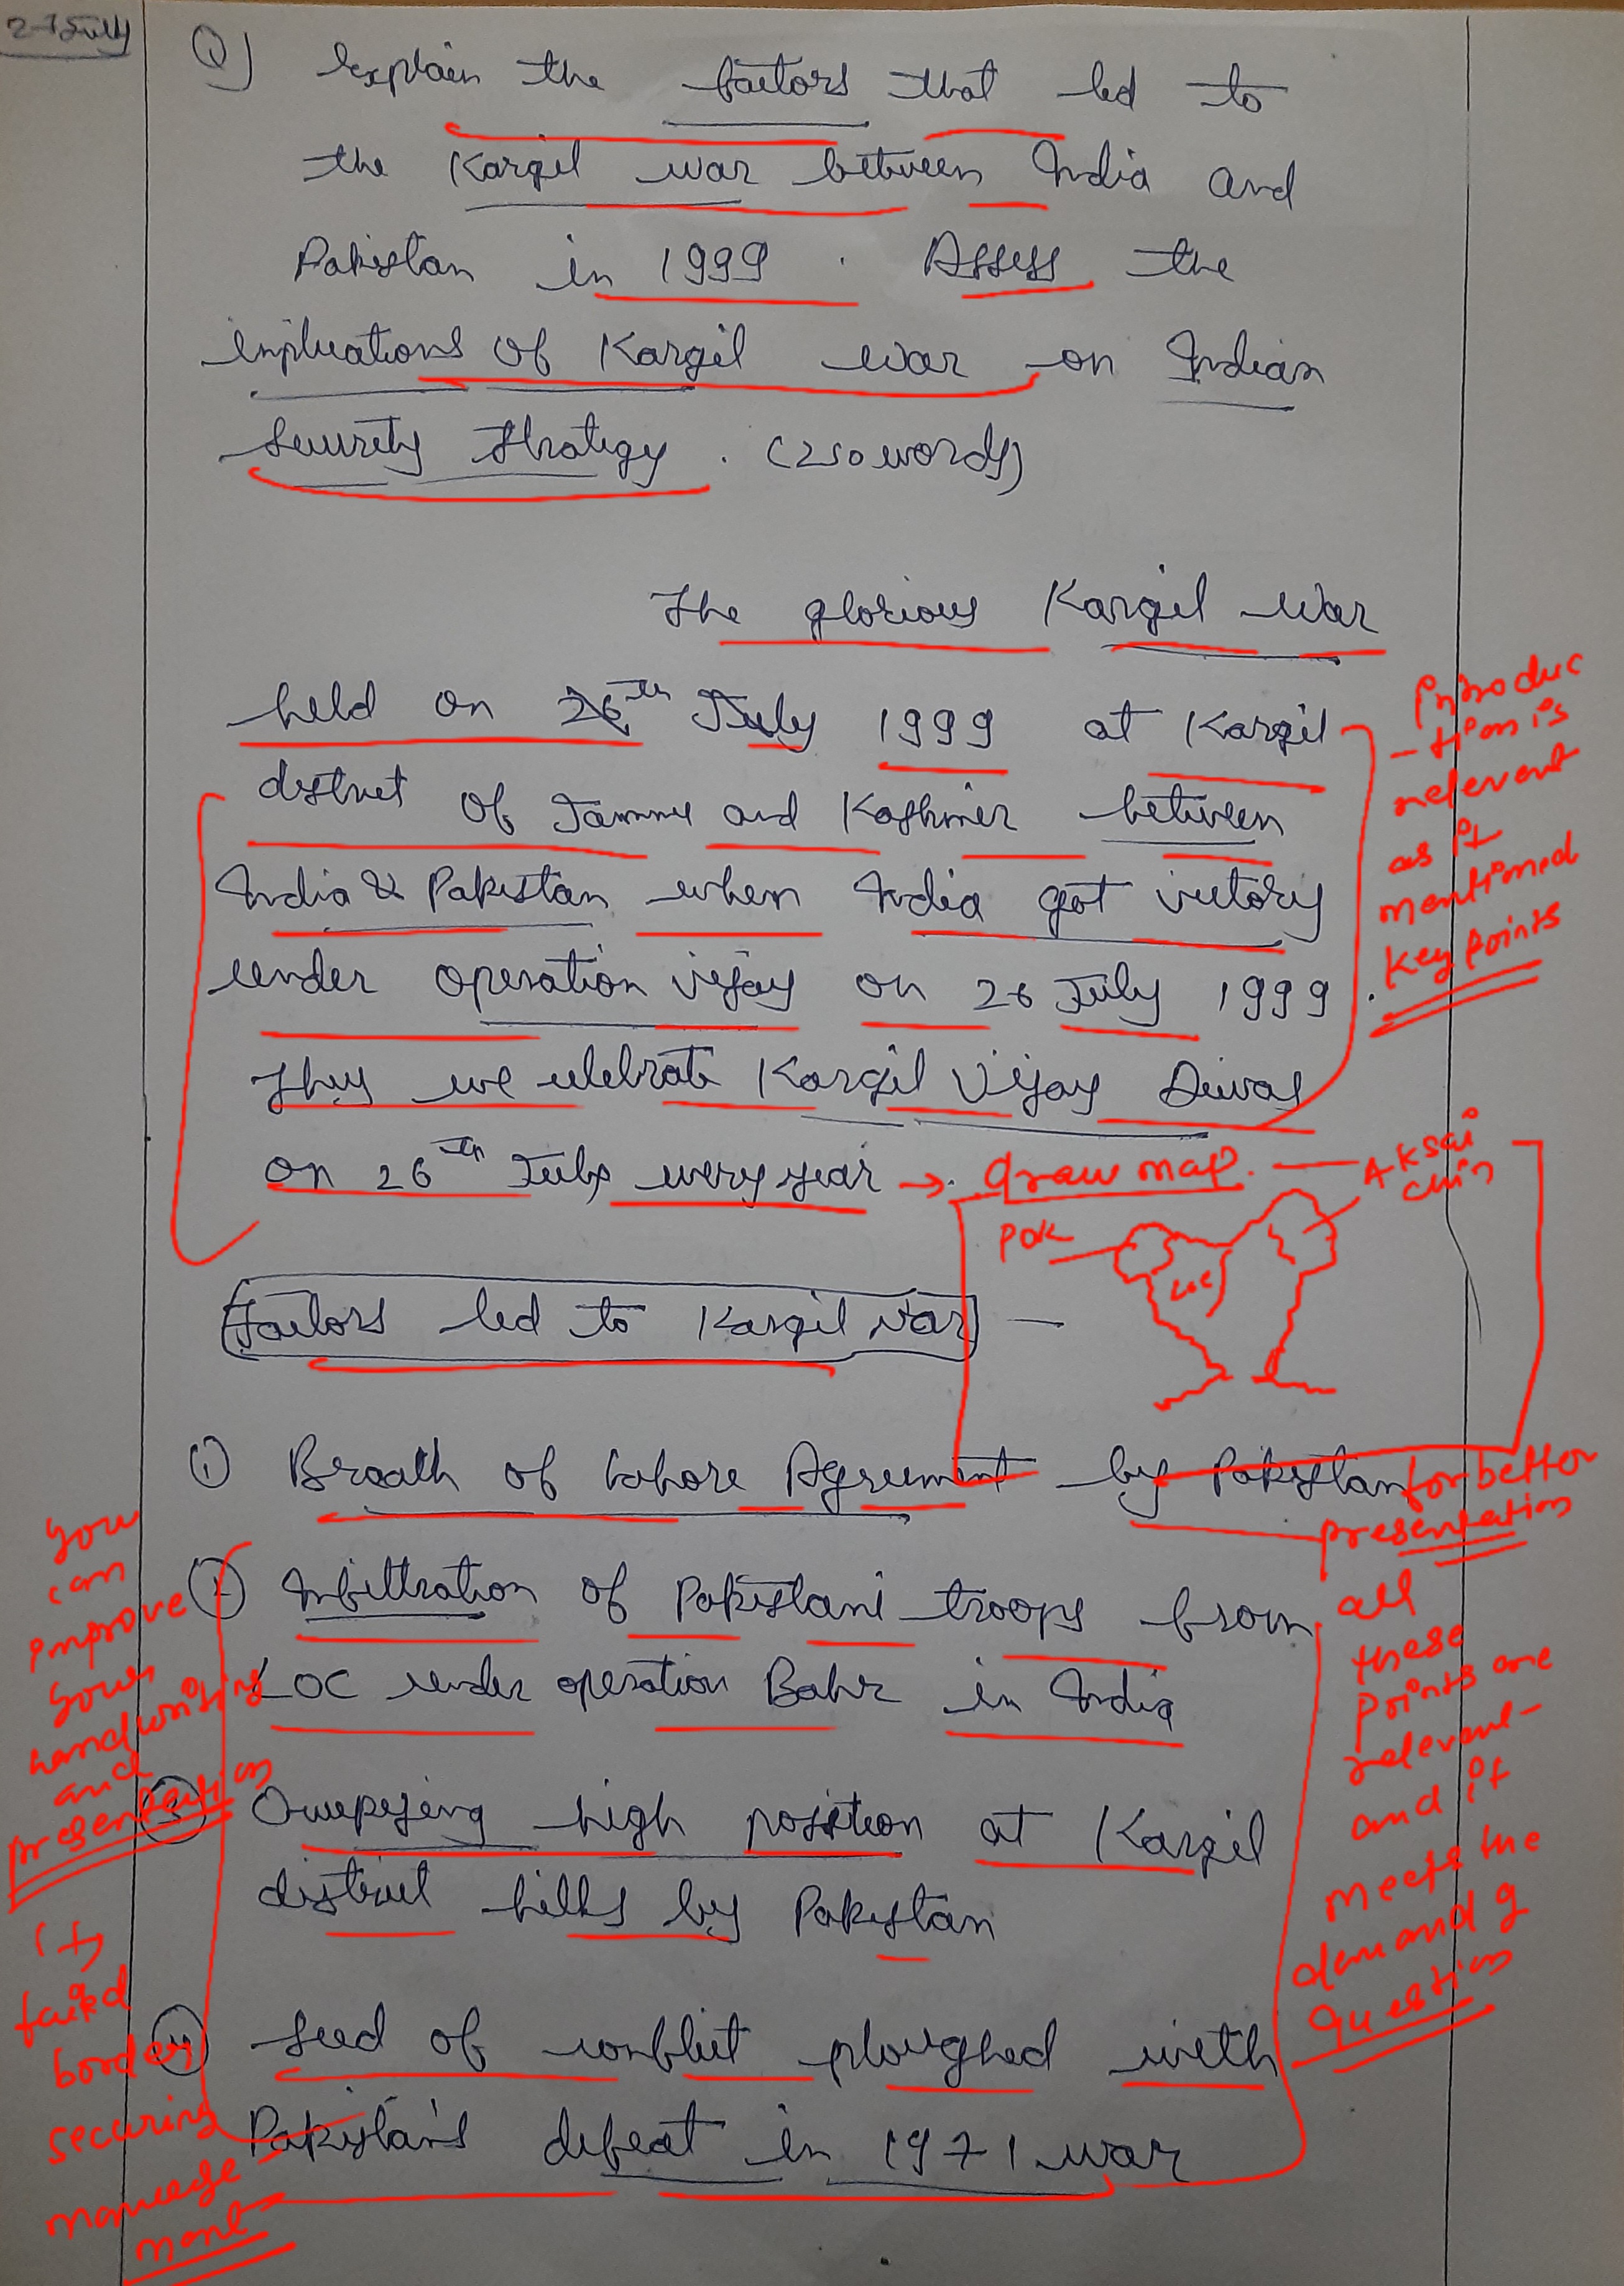 2-7 July
Q) Explain the factors that led to
the Kargil war between India and
Pakistan in 1999. Assess the
implications of Kargil war on Indian
Security Strategy. (250 words)
The glorious Kargil War
held on 26th July 1999 at Kargil
district of Jammu and Kashmir between
India & Pakistan when India got victory
under operation vijay on 26 July 1999.
Thus we celebrate Kargil Vijay Diwas
on 26th July every year → draw map.
Introduc
-tion is
relevent
as it
mentioned
key points
Aksai
chin
POK
LOC
Factors led to Kargil War —
① Breath of Lahore Agreement by Pakistan
for better
presentation
② Infiltration of Pakistani troops from
LOC under operation Badr in India
③ Occupying high position at Kargil
district hills by Pakistan
④ Seed of conflict ploughed with
Pakistan's defeat in 1971 war
you
can
improve
your
handwriting
and
presentation
(+)
failed
border
securing
manage
ment
all
these
points are
relevant-
and it
meets the
demand of
question